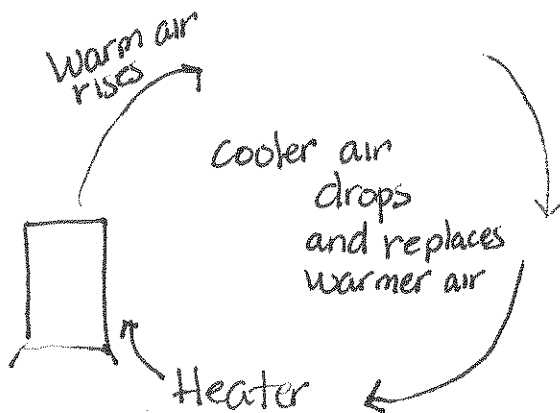 Warm air
rises
cooler air
drops
and replaces
warmer air
Heater